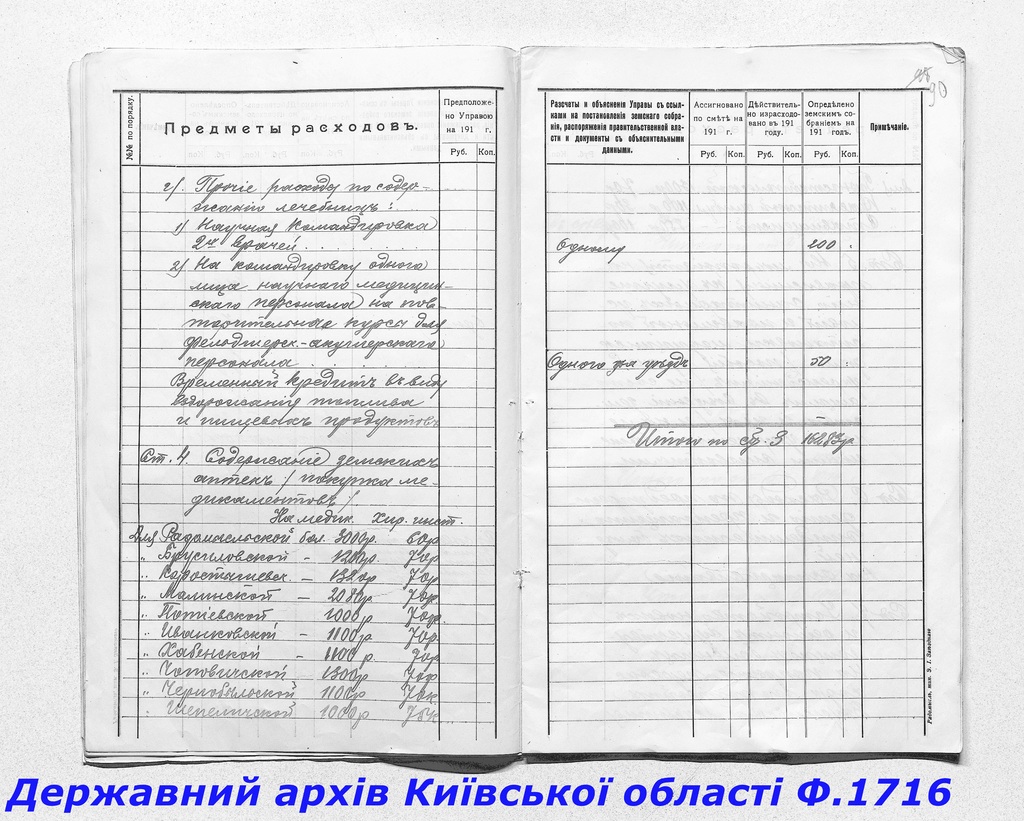 №№ по порядку.
Предметы расходовъ.
Предположе-
но Управою
на 191 г.
Руб. Коп.
2/. Прочіе расходы по содер-
жанію лечебницъ:
1) Научная командировка
2хъ врачей
2) На командировку одного
лица научнаго медицин-
скаго персонала на пов-
торительные курсы для
фельдшерск.-акушерскаго
персонала
Временный кредитъ въ виду
вздорожанія топлива
и пищевыхъ продуктовъ
Ст. 4. Содержаніе земскихъ
аптекъ / покупка ме-
дикаментовъ /
На медик. Хир. инст.
Для Радомысльской бол. 3000р. 60р
" Брусиловской – 1200р. 70р
" Коростышевск. – 1320р 70р
" Малинской – 2080р 70р
" Потіевской 1000р 70р
" Иванковской – 1100р 70р.
" Хабенской – 1100р 90р
" Чоповичской 1300р 70р
" Чернобыльской 1100р 70к
" Шепеличской 1000р 75к
98
90
Разсчеты и объясненія Управы съ ссыл-
ками на постановленія земскаго собра-
нія, распоряженія правительственной вла-
сти и документы съ объяснительными
данными.
Ассигновано
по смѣтѣ на
191 г.
Руб. Коп.
Дѣйствитель-
но израсходо-
вано въ 191
году.
Руб. Коп.
Опредѣлено
земскимъ со-
браніемъ на
191 годъ.
Руб. Коп.
Примѣчаніе.
Одному 200 :
Одного на уѣздъ 50 :
Итого по ст. 3
Радомысль, тип. У. І. Заводнаго
Державний архів Київської області Ф.1716